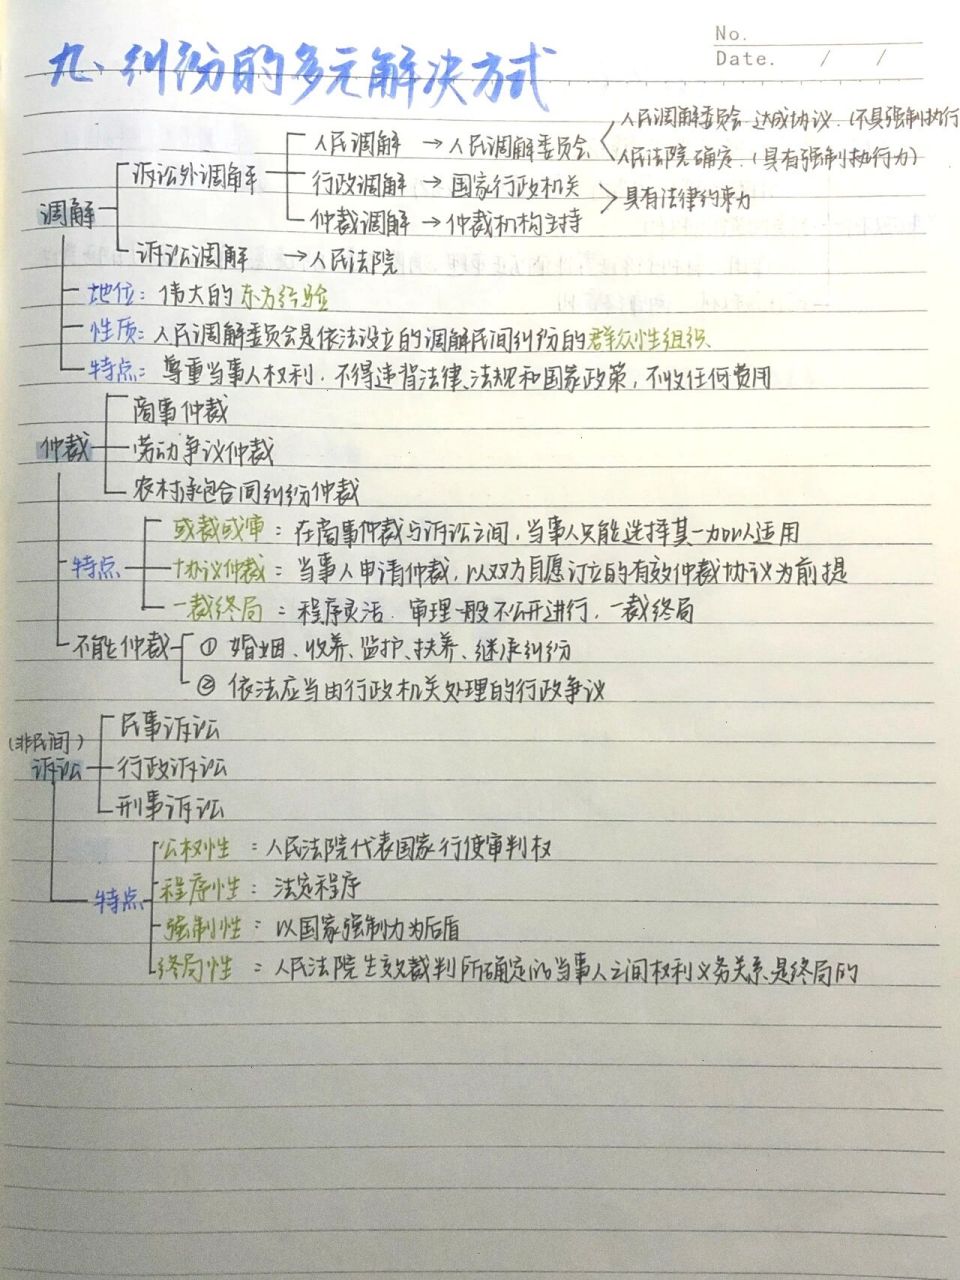 No.
Date. / /
九、纠纷的多元解决方式
人民调解委员会达成协议.(不具强制执行
人民调解 → 人民调解委员会
人民法院确定.(具有强制执行力)
诉讼外调解
行政调解 → 国家行政机关
具有法律约束力
调解
仲裁调解 → 仲裁机构主持
诉讼调解 → 人民法院
地位: 伟大的东方经验
性质: 人民调解委员会是依法设立的调解民间纠纷的群众性组织.
特点: 尊重当事人权利. 不得违背法律、法规和国家政策, 不收任何费用
商事仲裁
仲裁 劳动争议仲裁
农村承包合同纠纷仲裁
或裁或审: 在商事仲裁与诉讼之间, 当事人只能选择其一加以适用
特点 协议仲裁: 当事人申请仲裁, 以双方自愿订立的有效仲裁协议为前提
一裁终局: 程序灵活. 审理一般不公开进行. 一裁终局
不能仲裁 ① 婚姻、收养、监护、扶养、继承纠纷
② 依法应当由行政机关处理的行政争议
民事诉讼
(非民间)
诉讼 行政诉讼
刑事诉讼
公权性: 人民法院代表国家行使审判权
程序性: 法定程序
特点
强制性: 以国家强制力为后盾
终局性: 人民法院生效裁判所确定的当事人之间权利义务关系是终局的